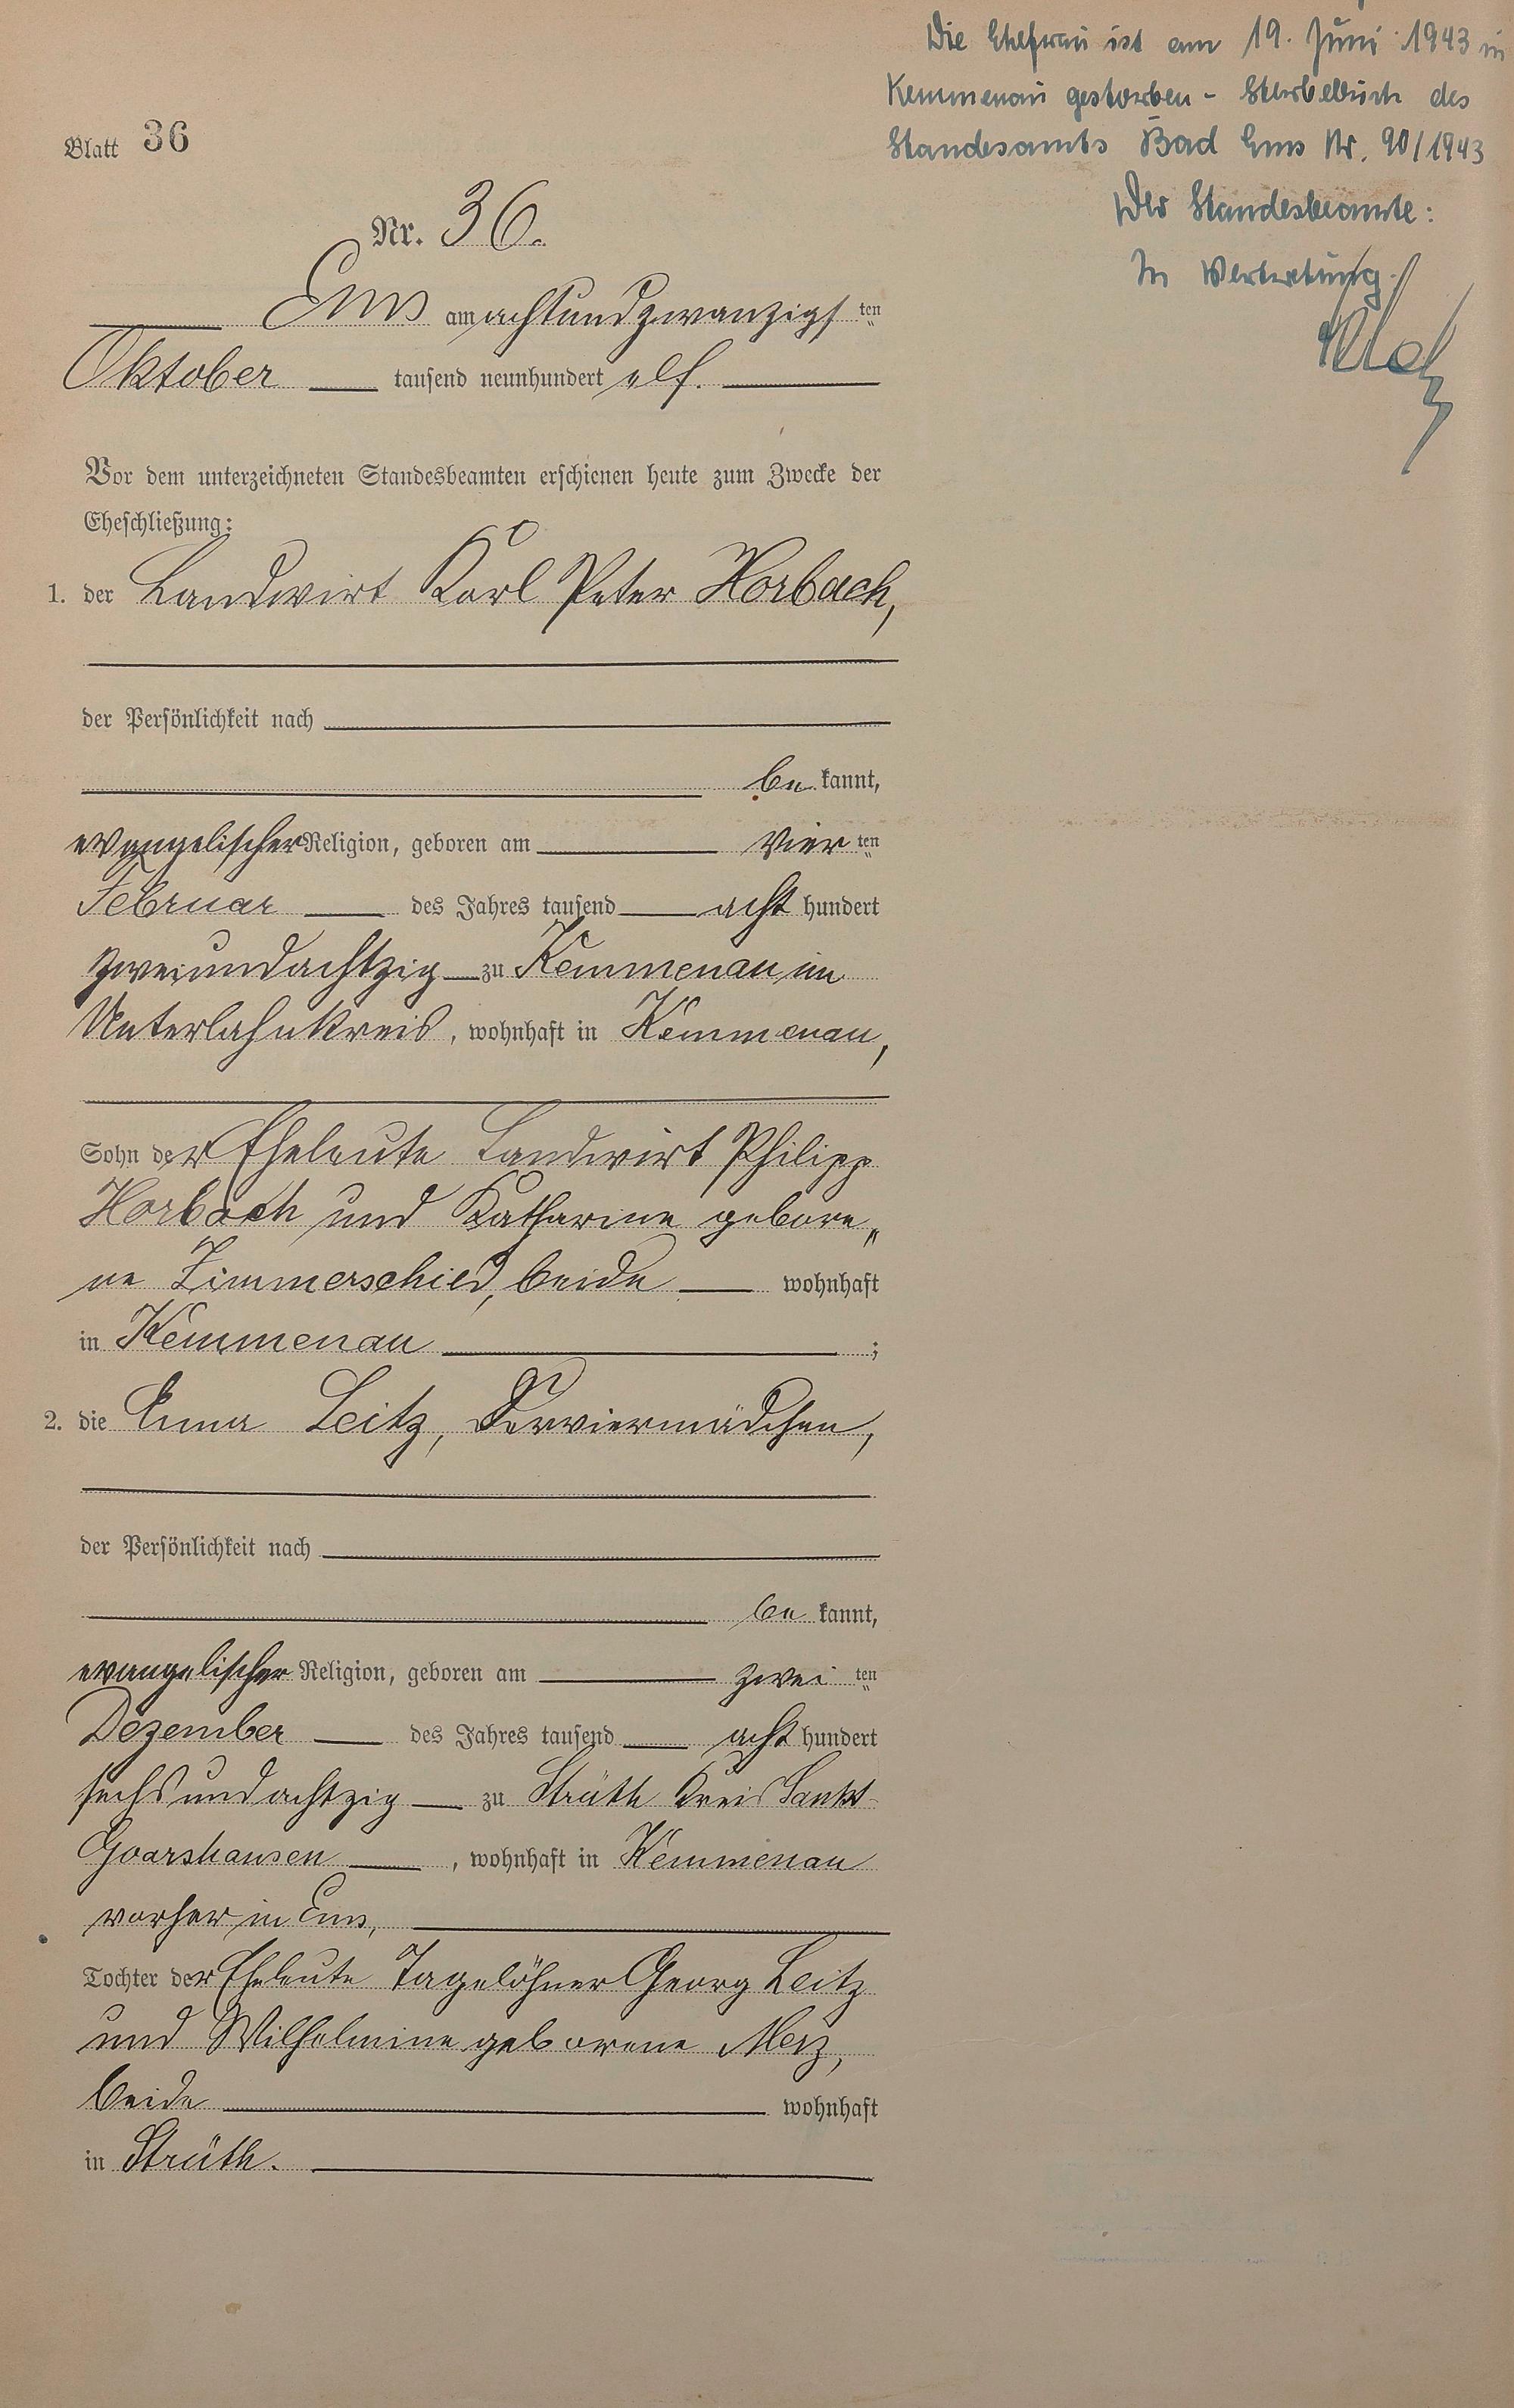 Die Ehefrau ist am 19. Juni 1943 in
Kemmenau gestorben - Sterbebuch des
Standesamts Bad Ems Nr. 90/1943
Der Standesbeamte:
In Vertretung.
Blatt 36
Nr. 36.
Ems am achtundzwanzigsten
Oktober tausend neunhundert elf.
Vor dem unterzeichneten Standesbeamten erschienen heute zum Zwecke der
Eheschließung:
1. der Landwirt Karl Peter Horbach,
der Persönlichkeit nach
be kannt,
evangelischer Religion, geboren am vier ten
Februar des Jahres tausend acht hundert
zweiundachtzig zu Kemmenau im
Unterlahnkreis, wohnhaft in Kemmenau,
Sohn der Eheleute Landwirt Philipp
Horbach und Katharine gebore„
ne Zimmerschied, beide wohnhaft
in Kemmenau ;
2. die Leitz, Serviermädchen,
der Persönlichkeit nach
be kannt,
evangelischer Religion, geboren am zwei ten
Dezember des Jahres tausend acht hundert
sechsundachtzig zu Strüth Kreis Sankt-
Goarshausen , wohnhaft in Kemmenau
vorher in Ems,
Tochter der Eheleute Tagelöhner Georg Leitz
und Wilhelmine geborene Merz,
beide wohnhaft
in Strüth.